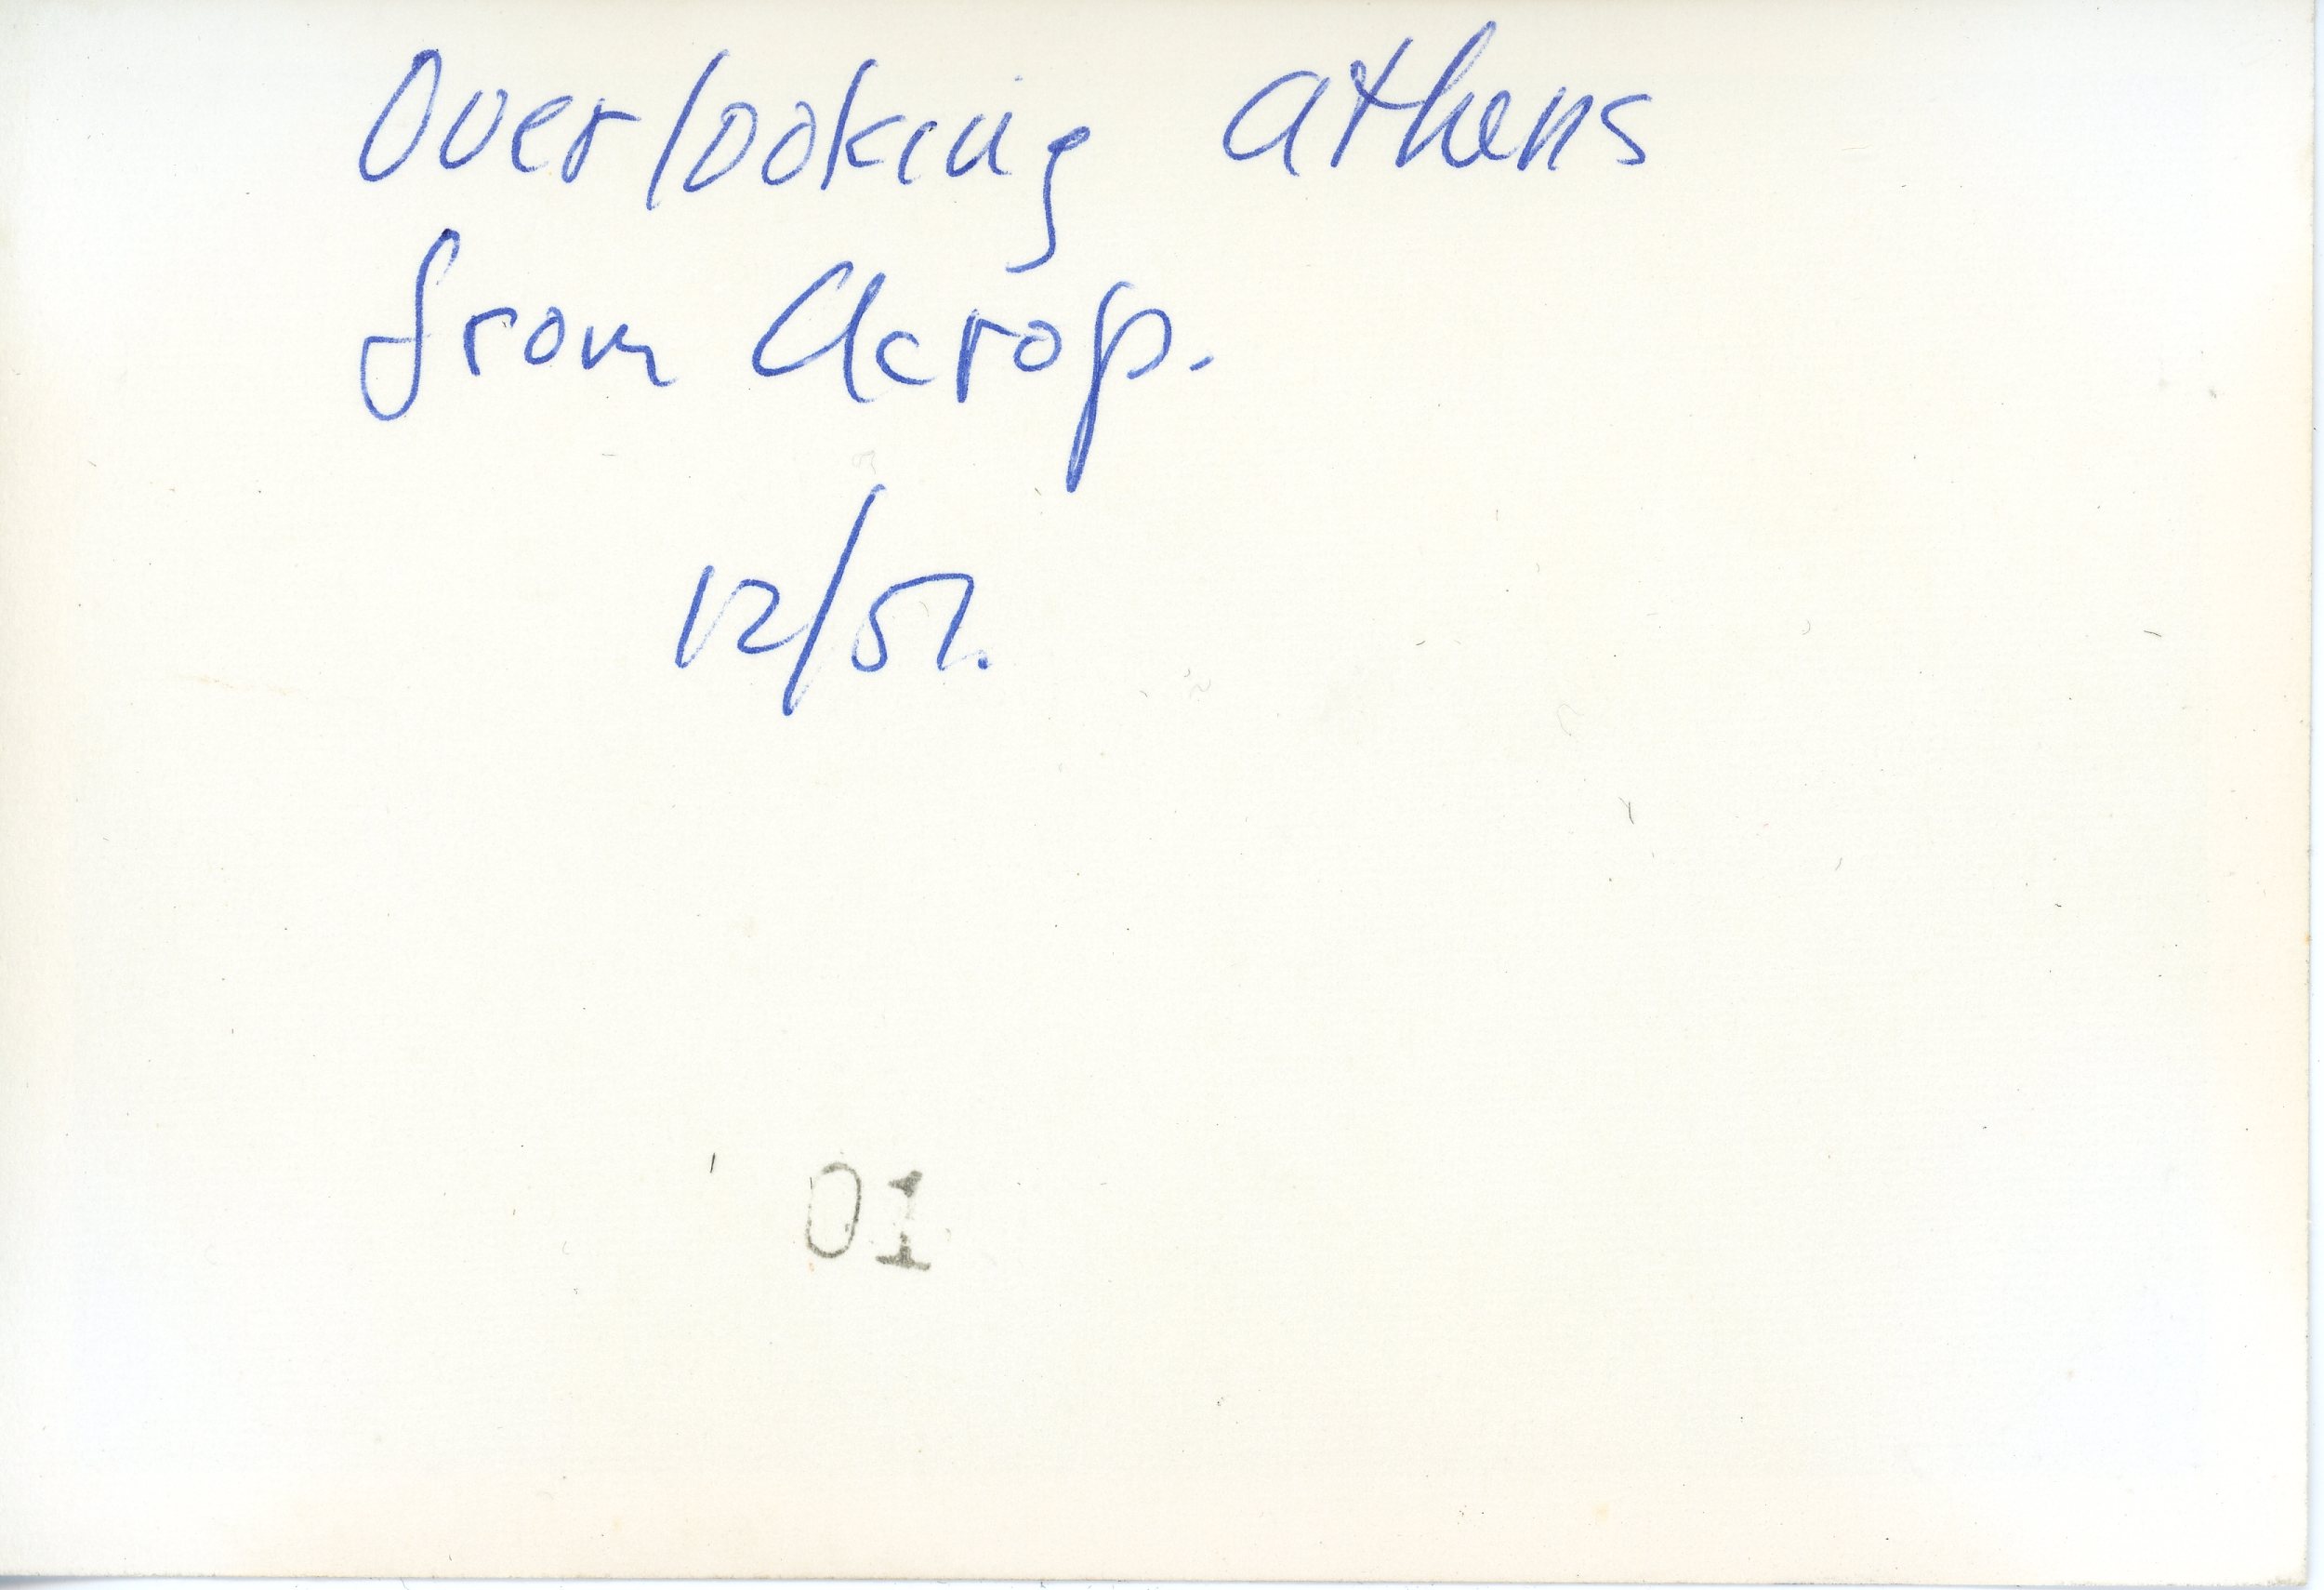 Overlooking Athens
from Acrop.
12/51.
01